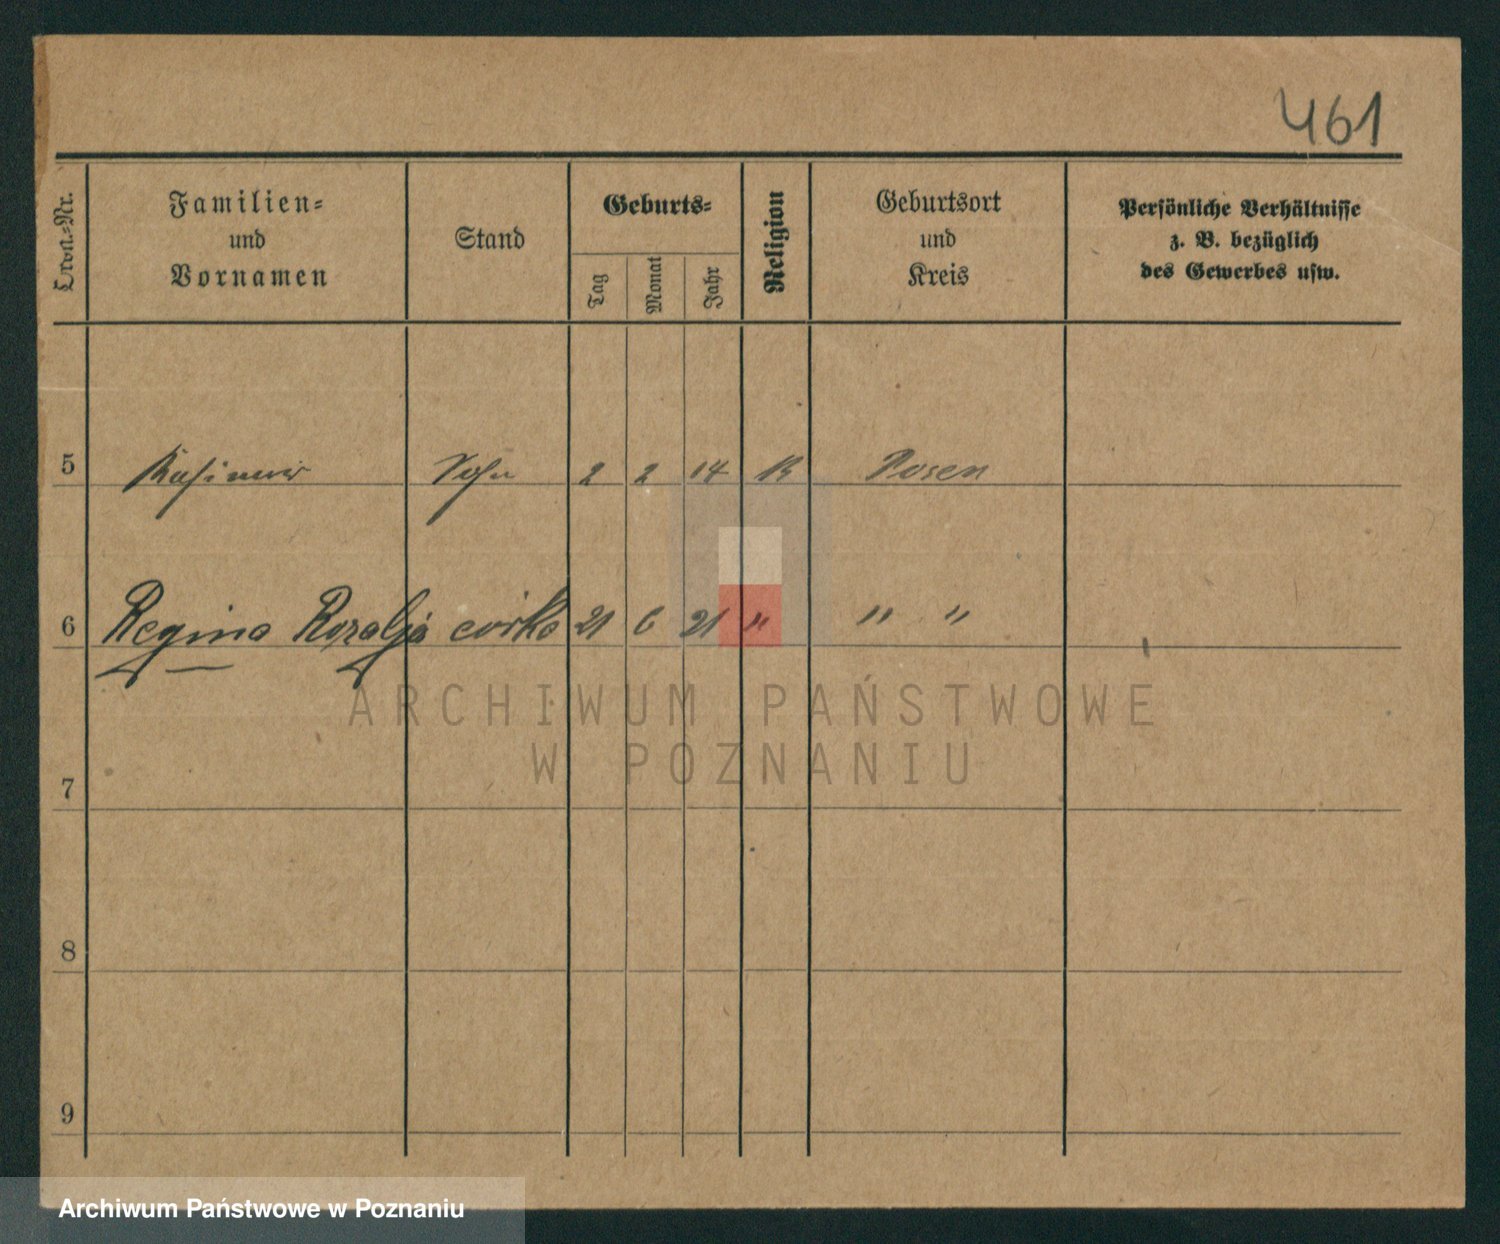 461
Ordn.-Nr.
Familien-
und
Vornamen
Stand
Geburts-
Tag
Monat
Jahr
Religion
Geburtsort
und
Kreis
Persönliche Verhältnisse
z. B. bezüglich
des Gewerbes usw.
5 Kasimir Sohn 2 2 14 K Posen
6 Regina Rozalja córka 21 6 21 " " "
7
8
9
ARCHIWUM PAŃSTWOWE
W POZNANIU
Archiwum Państwowe w Poznaniu